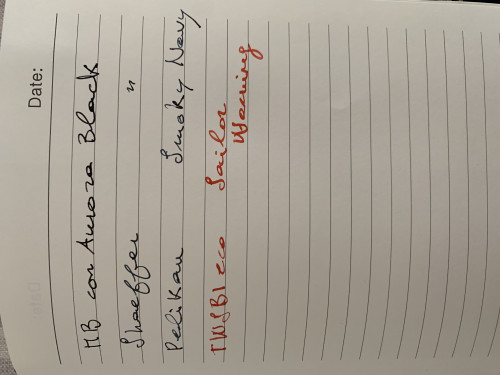 Date:
MB con Aurora Black
Sheaffer "
Pelikan Smoky Navy
TWSBI eco Sailor